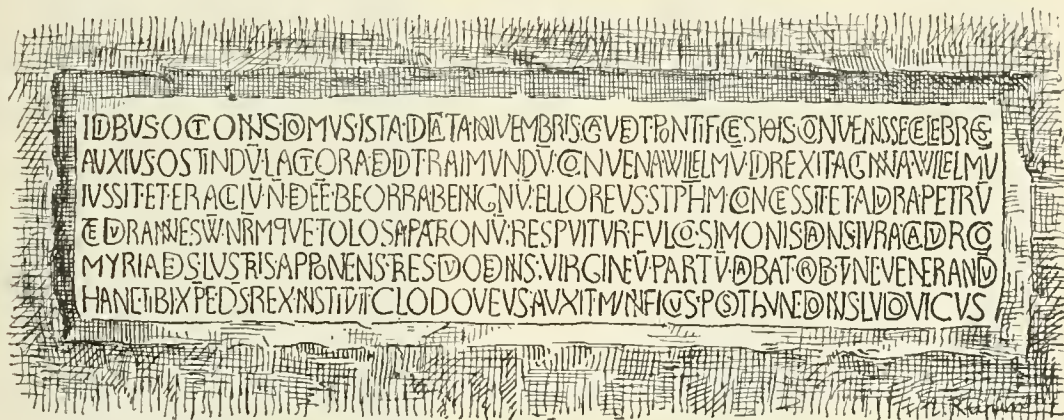 IDIBVS OCTONIS DOMVS ISTA·DICATA NOVEMBRIS GAVDET PONTIFICES HOS CONVENISSE CELEBRES
AVXIVS OSTINDV̄·LACTORA DEDIT RAIMVNDV̄·CONVENA WILELMV̄ DIREXIT AGINNA·WILELMV̄
IVSSIT ET ERACLIV̄·N̄ DEE·BEORRA BENIGNV̄·ELLOREVS·STPHM·CONCESSIT ET ADVRA PETRV̄
TE DVRANNE SV̄V̄·NRMQVE TOLOSA PATRONV̄·RESPVITVR FVLCO·SIMONIS DANS IVRA CADVRCO
MYRIADES·LVSTRIS APPONENS·TRES DVODENIS·VIRGINEV̄·PARTV̄·DABAT·ORBI·TVNC VENERANDV̄
HANC TIBI·XPE DS·REX INSTITVIT CLODOVEVS·AVXIT MVNIFICVS·POST hVNC DONIS LVDOVICVS